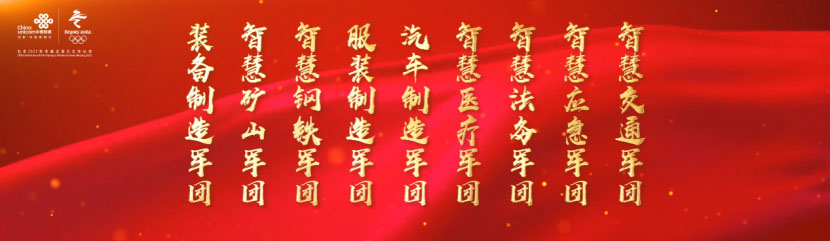 China
unicom中国联通
BEIJING 2022
北京2022年冬奥会官方合作伙伴
Official Partner of the Olympic Winter Games Beijing 2022
装备制造军团
智慧矿山军团
智慧钢铁军团
服装制造军团
汽车制造军团
智慧医疗军团
智慧法务军团
智慧应急军团
智慧交通军团